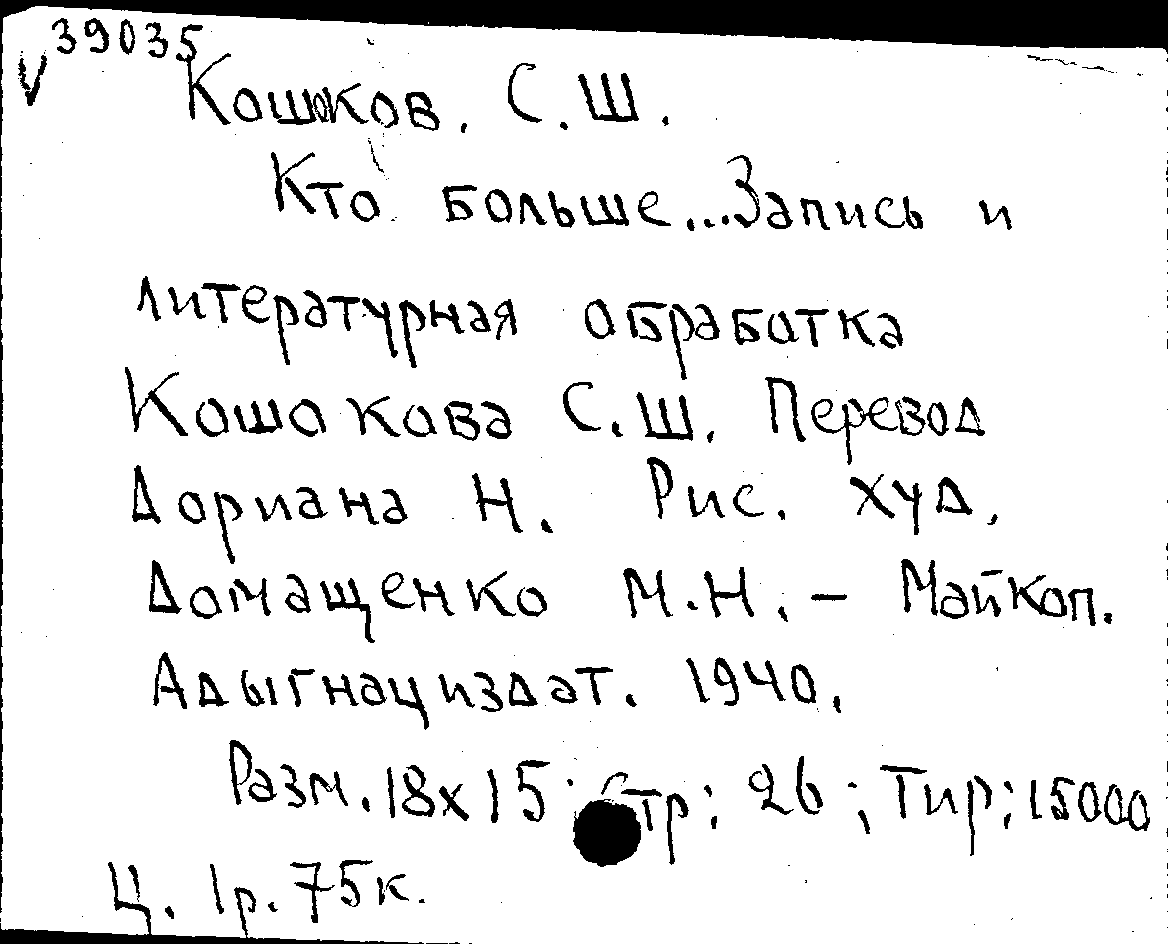 39035
V Кошоков. С.Ш.
Кто больше...Запись и
литературная обработка
Кошокова С.Ш. Перевод
Дориана Н. Рис. худ.
Домащенко М.Н. – Майкоп.
Адыгнациздат. 1940.
Разм. 18х15; Стр; 26; Тир; 15000
Ц. 1р. 75к.